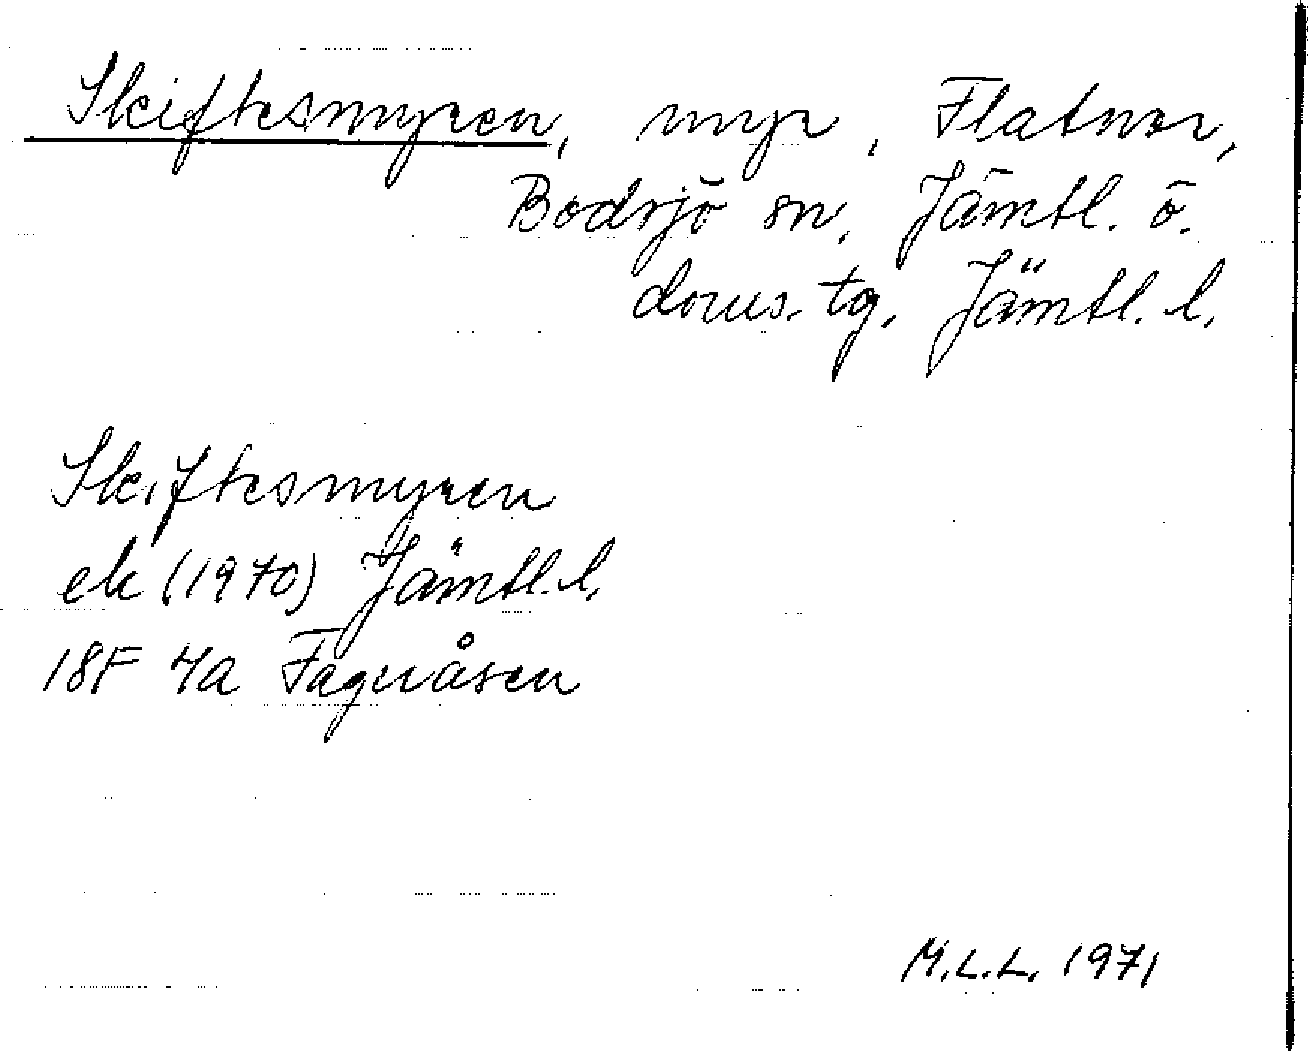 Skiftesmyren, myr, Flatnor,
Bodsjö sn, Jämtl. ö.
doms. tg. Jämtl. l.
Skiftesmyren
ek (1970) Jämtl. l.
18F 4a Fageråsen
M.L.L. 1971